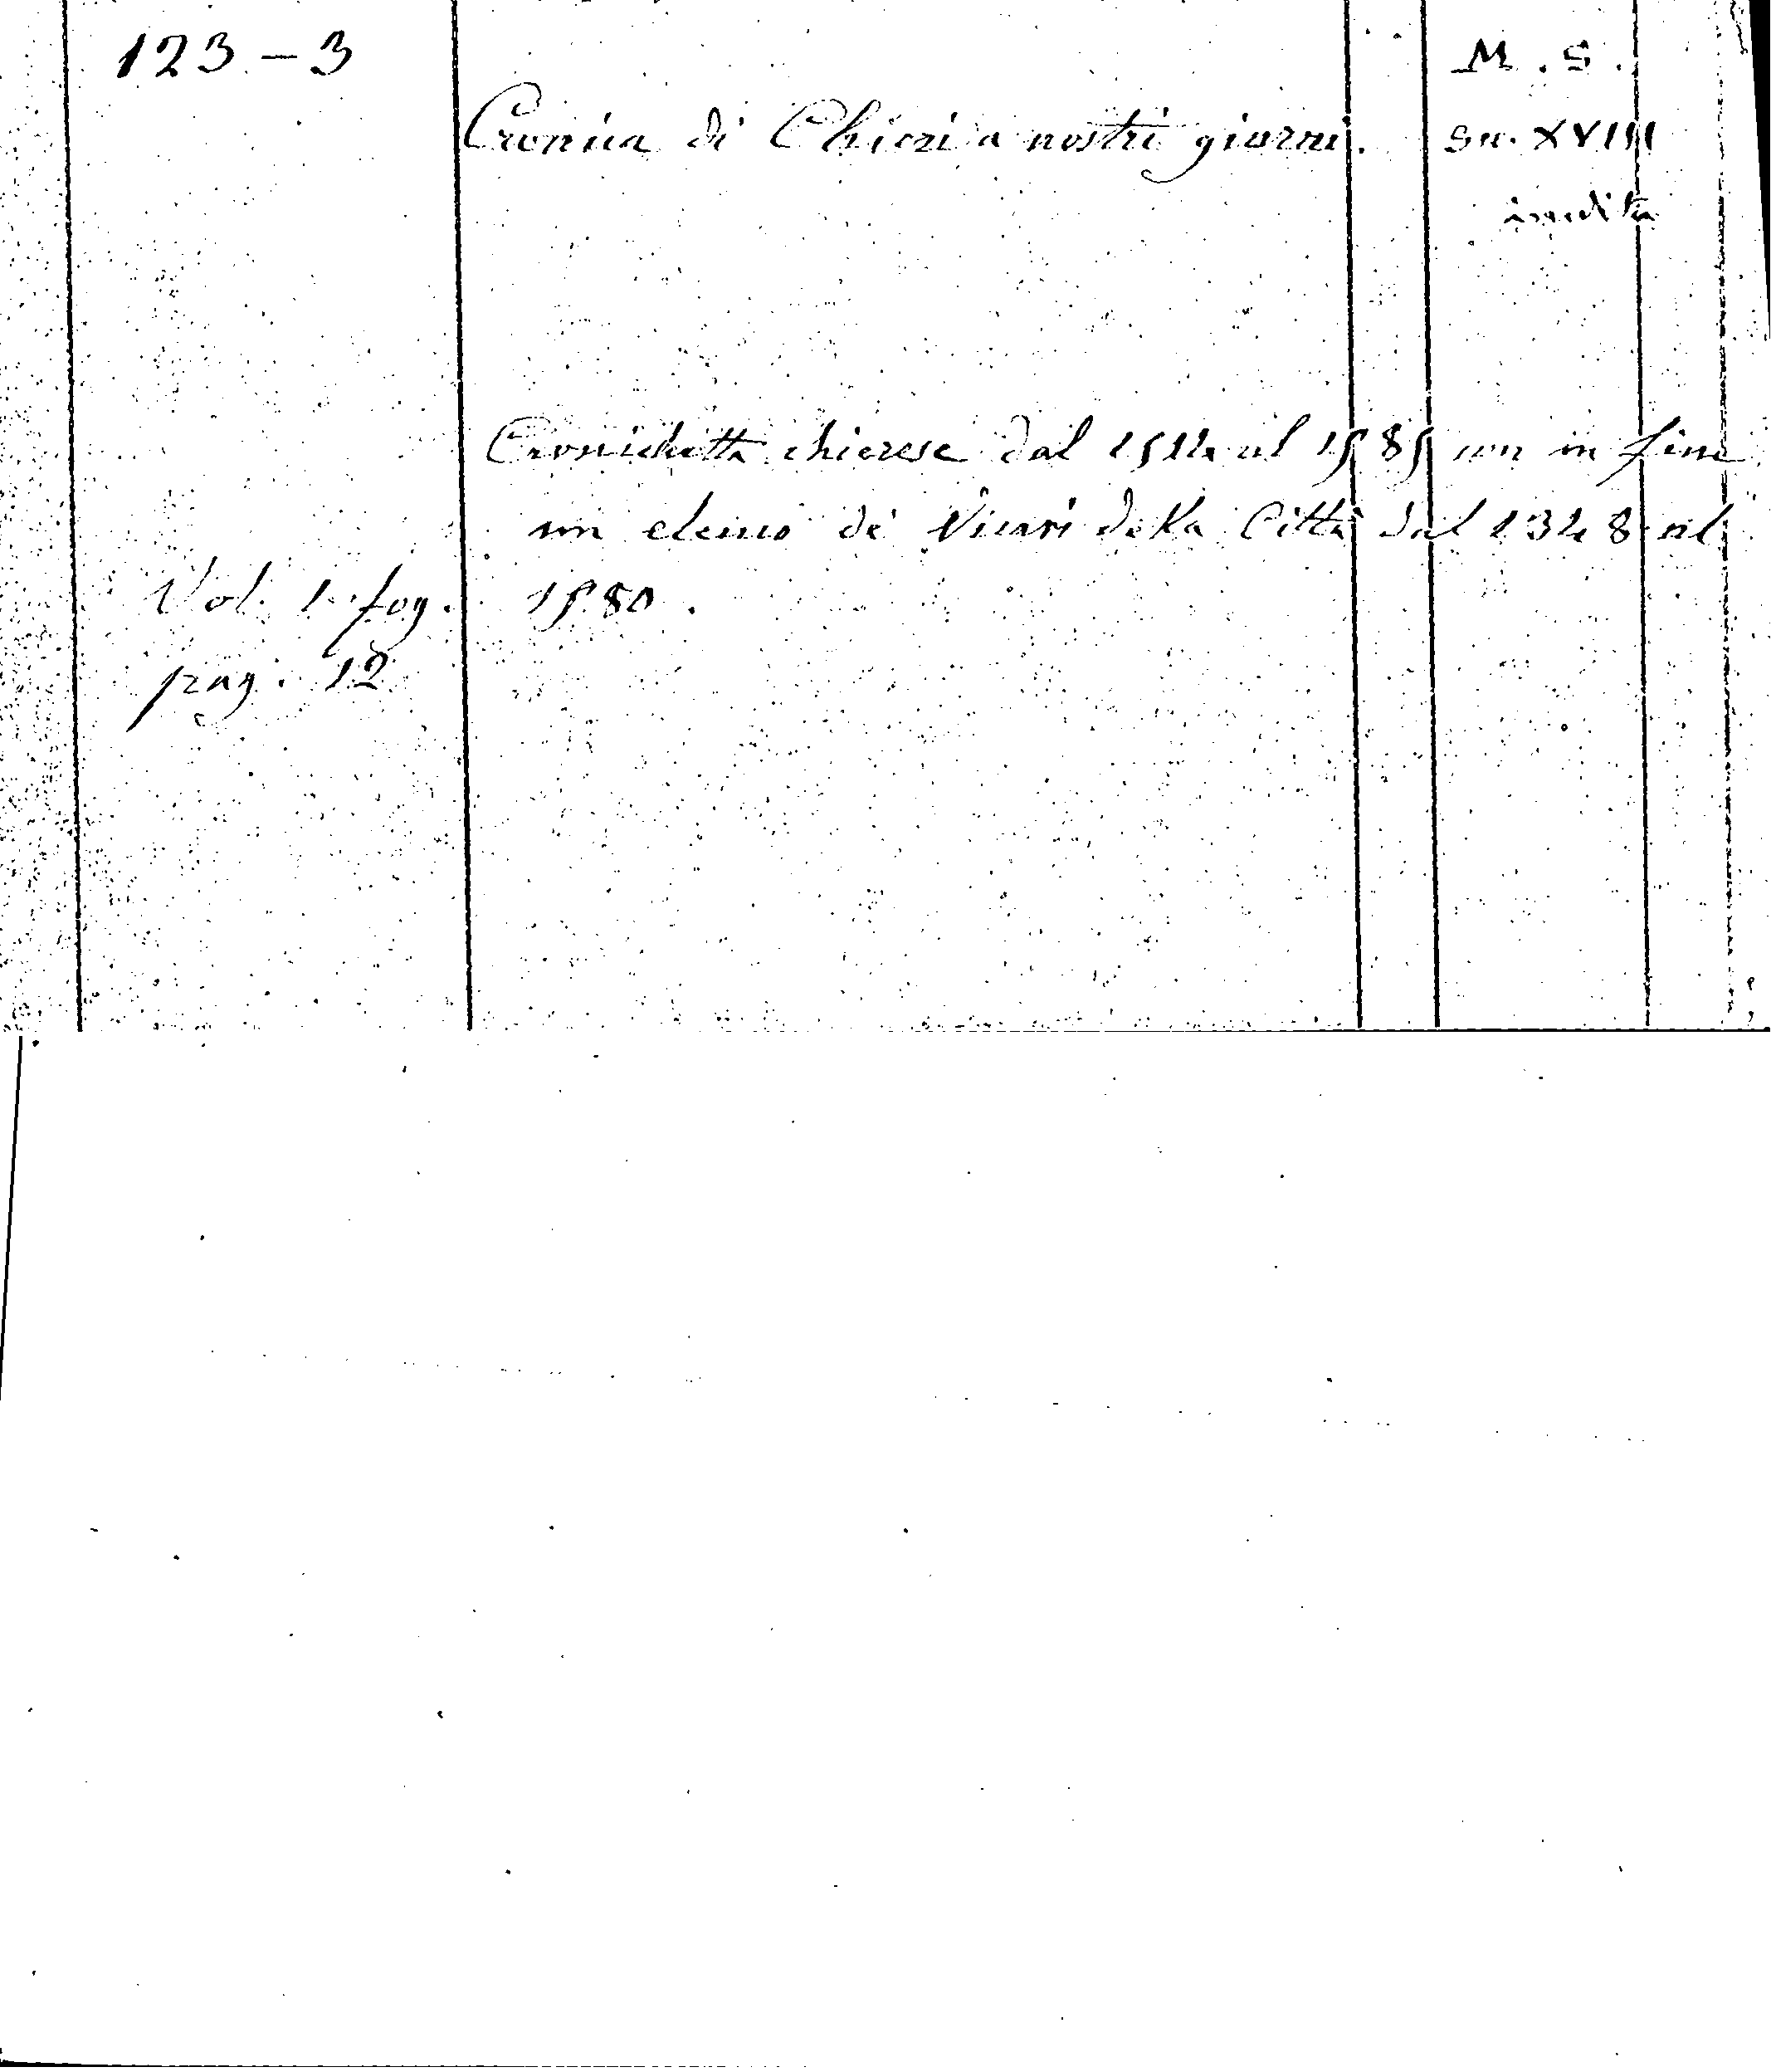 123 - 3
M. S.
Cronica di Chieri a nostri giorni.
Sec. XVIII
inedita
Cronichetta chierese dal 1514 al 1585 con in fine
un elenco de' Vicari della Città dal 1348 al
Vol. 1. fog.
1580.
pag. 12